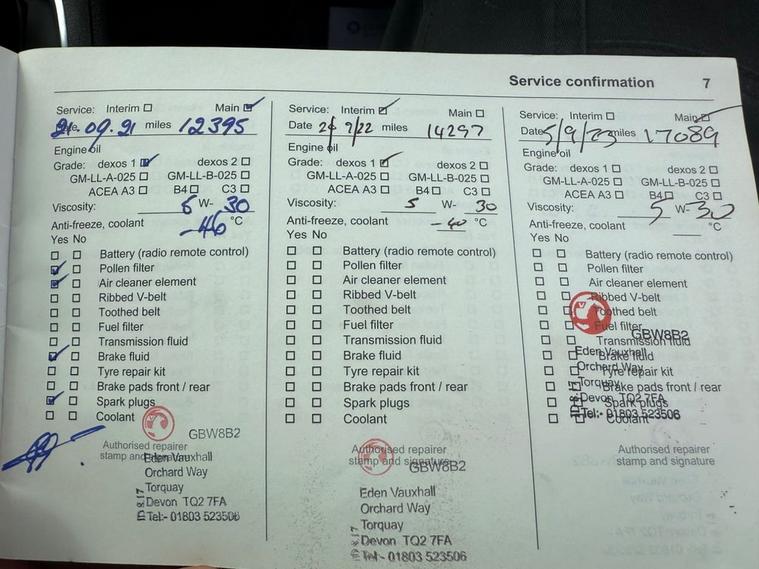 Service confirmation 7
Service: Interim Main
Date 21.09.21 miles 12395
Engine oil
Grade: dexos 1 dexos 2
GM-LL-A-025 GM-LL-B-025
ACEA A3 B4 C3
Viscosity: 5 W- 30
Anti-freeze, coolant -46 °C
Yes No
Battery (radio remote control)
Pollen filter
Air cleaner element
Ribbed V-belt
Toothed belt
Fuel filter
Transmission fluid
Brake fluid
Tyre repair kit
Brake pads front / rear
Spark plugs
Coolant
GBW8B2
Authorised repairer
stamp and signature
Eden Vauxhall
Orchard Way
Torquay
Devon TQ2 7FA
Tel:- 01803 523506
Service: Interim Main
Date 26/7/22 miles 14297
Engine oil
Grade: dexos 1 dexos 2
GM-LL-A-025 GM-LL-B-025
ACEA A3 B4 C3
Viscosity: 5 W- 30
Anti-freeze, coolant -40 °C
Yes No
Battery (radio remote control)
Pollen filter
Air cleaner element
Ribbed V-belt
Toothed belt
Fuel filter
Transmission fluid
Brake fluid
Tyre repair kit
Brake pads front / rear
Spark plugs
Coolant
Authorised repairer
stamp and signature
GBW8B2
Eden Vauxhall
Orchard Way
Torquay
Devon TQ2 7FA
Tel:- 01803 523506
Service: Interim Main
Date 5/9/23 miles 17089
Engine oil
Grade: dexos 1 dexos 2
GM-LL-A-025 GM-LL-B-025
ACEA A3 B4 C3
Viscosity: 5 W- 30
Anti-freeze, coolant °C
Yes No
Battery (radio remote control)
Pollen filter
Air cleaner element
Ribbed V-belt
Toothed belt
Fuel filter
GBW8B2
Transmission fluid
Eden Vauxhall
Brake fluid
Orchard Way
Tyre repair kit
Torquay
Brake pads front / rear
Devon TQ2 7FA
Spark plugs
Tel:- 01803 523506
Coolant
Authorised repairer
stamp and signature